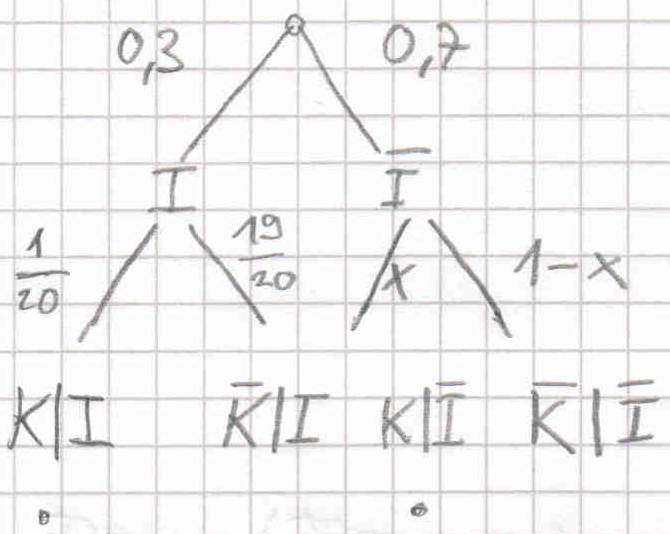 0,3 0,7
I I̅
1/20 19/20 x 1-x
K|I K̅|I K|I̅ K̅|I̅